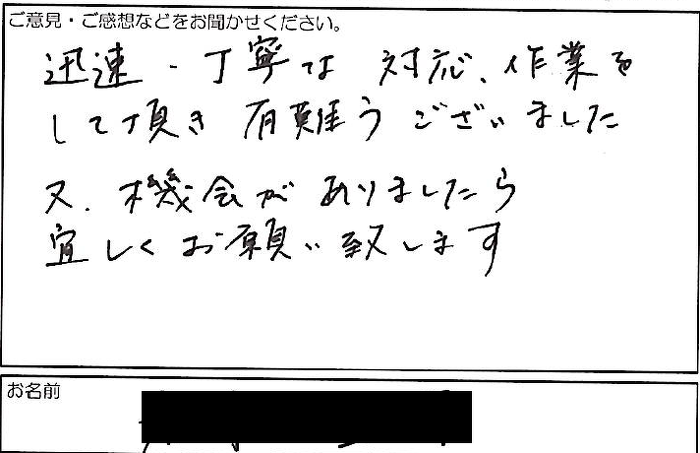 ご意見・ご感想などをお聞かせください。
迅速・丁寧な対応、作業を
して頂き有難うございました
又、機会がありましたら
宜しくお願い致します
お名前